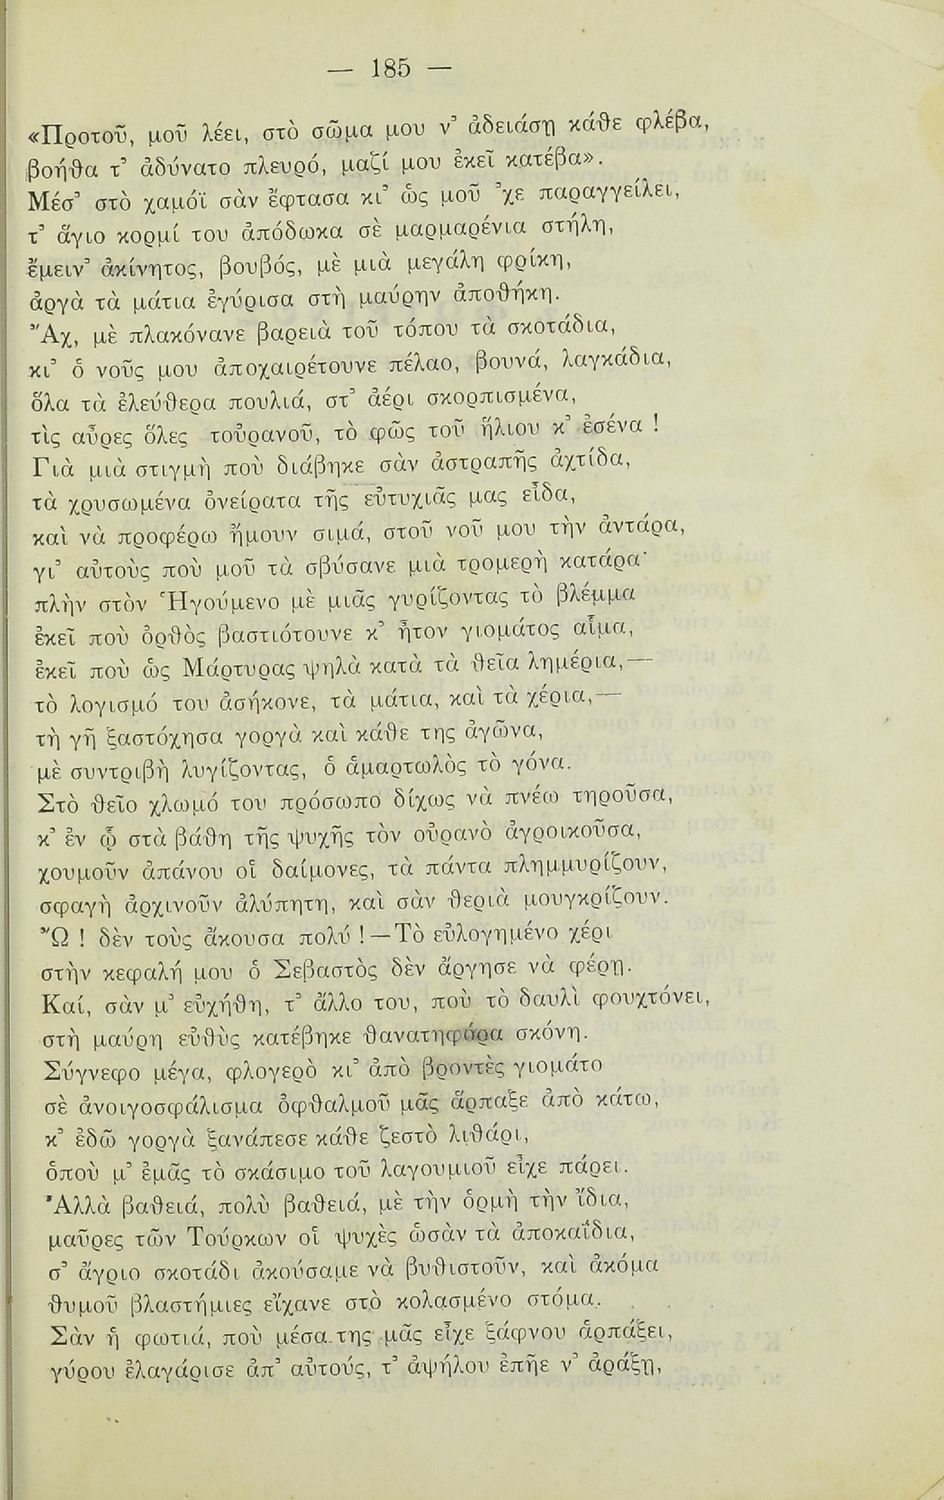 — 185 —
«Προτοῦ, μοῦ λέει, στὸ σῶμα μου ν᾽ ἀδειάσῃ κάθε φλέβα,
βοήθα τ᾽ ἀδύνατο πλευρό, μαζί μου ἐκεῖ κατέβα».
Μέσ᾽ στὸ χαμόϊ σὰν ἔφτασα κι᾽ ὡς μοῦ ᾽χε παραγγείλει,
τ᾽ ἅγιο κορμί του ἀπόδωκα σὲ μαρμαρένια στήλη,
ἔμειν᾽ ἀκίνητος, βουβός, μὲ μιὰ μεγάλη φρίκη,
ἀργὰ τὰ μάτια ἐγύρισα στὴ μαύρην ἀποθήκη.
Ἄχ, μὲ πλακόνανε βαρειὰ τοῦ τόπου τὰ σκοτάδια,
κι᾽ ὁ νοῦς μου ἀποχαιρέτουνε πέλαο, βουνά, λαγκάδια,
ὅλα τὰ ἐλεύθερα πουλιά, στ᾽ ἀέρι σκορπισμένα,
τὶς αὖρες ὅλες τοὐρανοῦ, τὸ φῶς τοῦ ἥλιου κ᾽ ἐσένα !
Γιὰ μιὰ στιγμὴ ποὺ διάβηκε σὰν ἀστραπῆς ἀχτίδα,
τὰ χρυσωμένα ὀνείρατα τῆς εὐτυχιᾶς μας εἶδα,
καὶ νὰ προφέρω ἤμουν σιμά, στοῦ νοῦ μου τὴν ἀντάρα,
γι᾽ αὐτοὺς ποὺ μοῦ τὰ σβύσανε μιὰ τρομερὴ κατάρα·
πλὴν στὸν Ἡγούμενο μὲ μιᾶς γυρίζοντας τὸ βλέμμα
ἐκεῖ ποὺ ὀρθὸς βαστιότουνε κ᾽ ἦτον γιομάτος αἷμα,
ἐκεῖ ποὺ ὡς Μάρτυρας ψηλὰ κατὰ τὰ θεῖα λημέρια,—
τὸ λογισμό του ἀσήκονε, τὰ μάτια, καὶ τὰ χέρια,—
τὴ γῆ ξαστόχησα γοργὰ καὶ κάθε της ἀγῶνα,
μὲ συντριβὴ λυγίζοντας, ὁ ἁμαρτωλὸς τὸ γόνα.
Στὸ θεῖο χλωμό του πρόσωπο δίχως νὰ πνέω τηροῦσα,
κ᾽ ἐν ᾧ στὰ βάθη τῆς ψυχῆς τὸν οὐρανὸ ἀγροικοῦσα,
χουμοῦν ἀπάνου οἱ δαίμονες, τὰ πάντα πλημμυρίζουν,
σφαγὴ ἀρχινοῦν ἀλύπητη, καὶ σὰν θεριὰ μουγκρίζουν.
Ὢ ! δὲν τοὺς ἄκουσα πολύ !—Τὸ εὐλογημένο χέρι
στὴν κεφαλή μου ὁ Σεβαστὸς δὲν ἄργησε νὰ φέρῃ.
Καί, σὰν μ᾽ εὐχήθη, τ᾽ ἄλλο του, ποὺ τὸ δαυλὶ φουχτόνει,
στὴ μαύρη εὐθὺς κατέβηκε θανατηφόρα σκόνη.
Σύγνεφο μέγα, φλογερὸ κι᾽ ἀπὸ βροντὲς γιομάτο
σὲ ἀνοιγοσφάλισμα ὀφθαλμοῦ μᾶς ἅρπαξε ἀπὸ κάτω,
κ᾽ ἐδῶ γοργὰ ξανάπεσε κάθε ζεστὸ λιθάρι,
ὁποὺ μ᾽ ἐμᾶς τὸ σκάσιμο τοῦ λαγουμιοῦ εἶχε πάρει.
Ἀλλὰ βαθειά, πολὺ βαθειά, μὲ τὴν ὁρμὴ τὴν ἴδια,
μαῦρες τῶν Τούρκων οἱ ψυχὲς ὡσὰν τὰ ἀποκαΐδια,
σ᾽ ἄγριο σκοτάδι ἀκούσαμε νὰ βυθιστοῦν, καὶ ἀκόμα
θυμοῦ βλαστήμιες εἴχανε στὸ κολασμένο στόμα.
Σὰν ἡ φωτιά, ποὺ μέσα της μᾶς εἶχε ξάφνου ἁρπάξει,
γύρου ἐλαγάρισε ἀπ᾽ αὐτούς, τ᾽ ἀψήλου ἐπῆε ν᾽ ἀράξῃ,